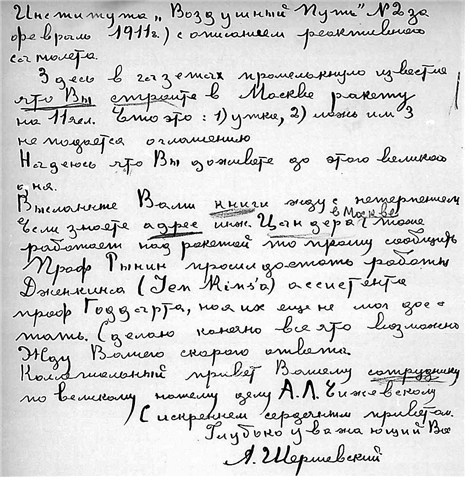 Института „Воздушный Путь" №2 за
февраль 1911г) с описанием реактивного
самолета.
Здесь в газетах промелькнуло известие
что Вы строите в Москве ракету
на 11 чел. Что это: 1) утка, 2) ложь или 3
не подается оглашению
Надеюсь что Вы доживете до этого великого
дня.
Высланные Вами книги жду с нетерпением
Если знаете адрес инж. Цандера (тоже
в Москве
работает над ракетой то прошу сообщить
Проф Рынин просил достать работы
Дженкинса (Jenkins'a) ассистента
проф Годдарта, но я их еще не мог дос-
тать. Сделаю конечно все что возможно
Жду Вашего скорого ответа.
Коллегиальный привет Вашему сотруднику
по великому нашему делу А.Л. Чижевскому
С искренем сердечным приветом.
Глубоко уважающий Вас
А. Шершевский